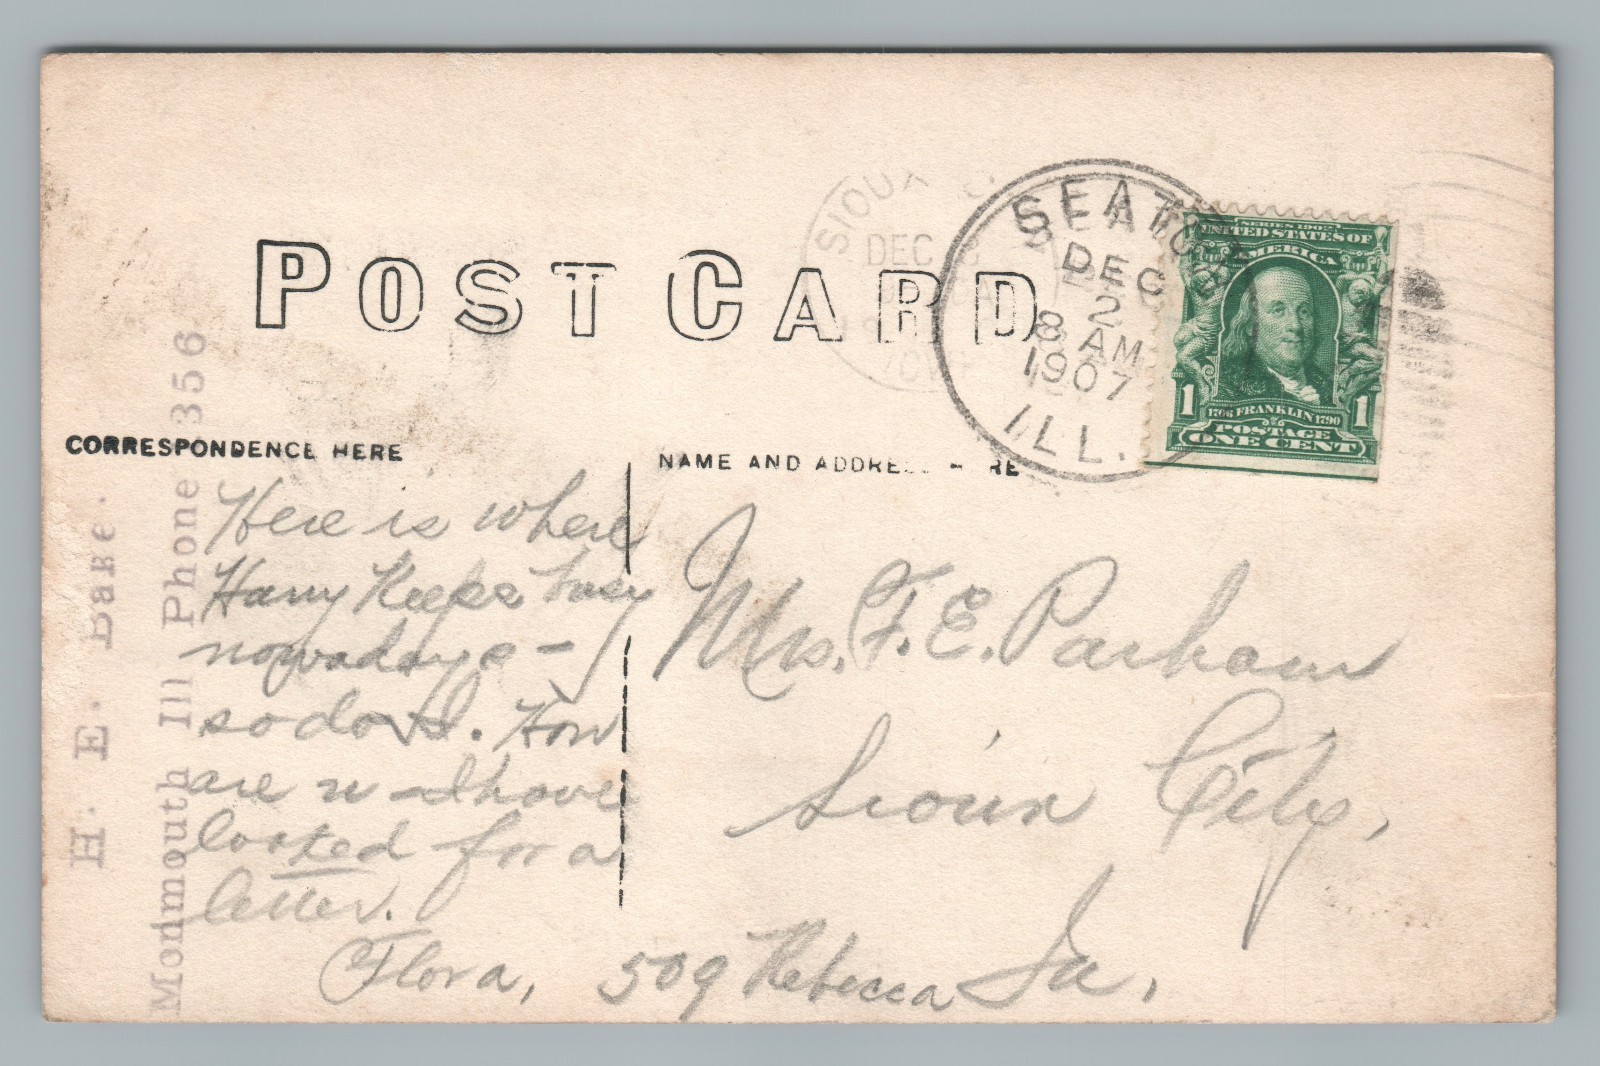 POST CARD
SIOUX C
DEC 3
IOWA
SEATON
DEC
2
8 AM
1907
ILL.
SERIES 1902
UNITED STATES OF
AMERICA
1706 FRANKLIN 1790
1 1
POSTAGE
ONE CENT
CORRESPONDENCE HERE
NAME AND ADDRESS HERE
H. E. BAKE.
Monmouth Ill Phone 356
Here is where
Harry Keeps busy
nowadays -
so do I. How
are u - I have
looked for a
letter.
Flora,
Mrs. F. E. Parham
Sioux City,
509 Rebecca Ia.